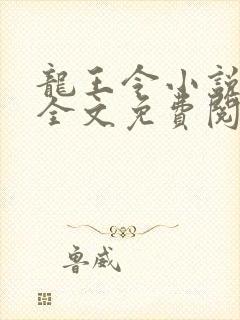 龍王令小說
全文免費閱
魯威